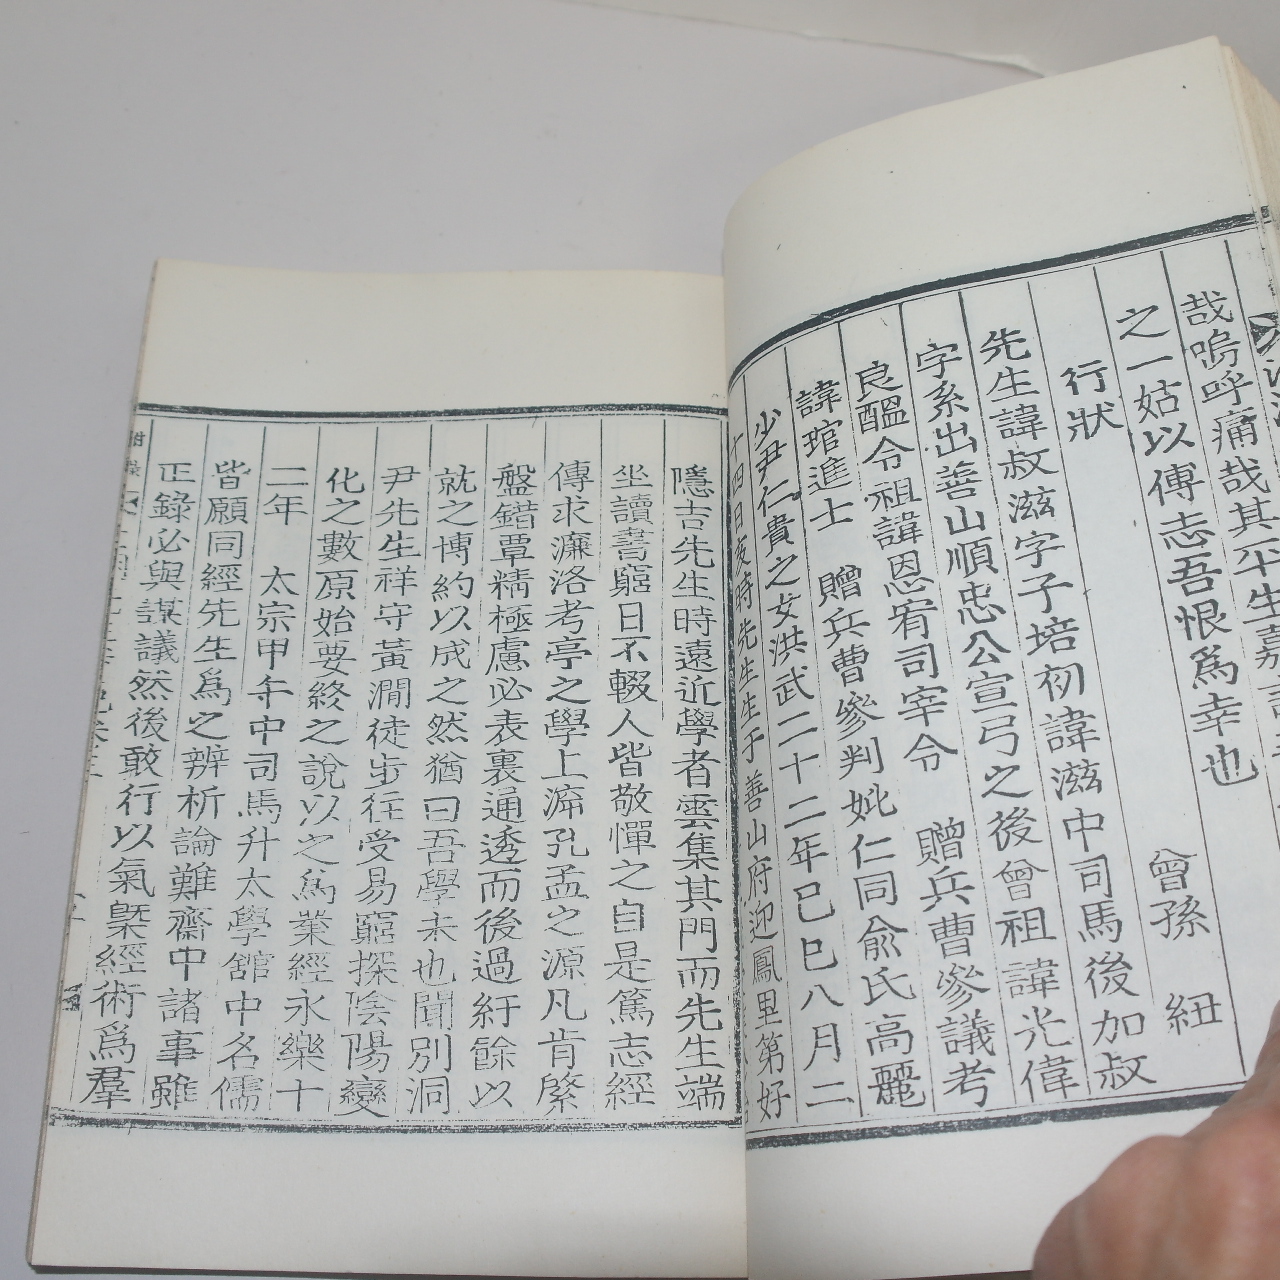 哉嗚呼痛哉其平生嘉言
之一姑以傳志吾恨爲幸也
曾孫 紐
行狀
先生諱叔滋字子培初諱滋中司馬後加叔
字系出善山順忠公宣弓之後曾祖諱光偉
良醞令祖諱恩宥司宰令 贈兵曹參議考
諱琯進士 贈兵曹參判妣仁同兪氏高麗
少尹仁貴之女洪武二十二年己巳八月二
十四日亥時先生生于善山府迎鳳里第好
隱吉先生時遠近學者雲集其門而先生端
坐讀書窮日不輟人皆敬憚之自是篤志經
傳求濂洛考亭之學上泝孔孟之源凡肯綮
盤錯覃精極慮必表裏通透而後過紆餘以
就之博約以成之然猶曰吾學未也聞別洞
尹先生祥守黃澗徒步往受易窮探陰陽變
化之數原始要終之說以之爲業經永樂十
二年 太宗甲午中司馬升太學舘中名儒
皆願同經先生爲之辨析論難齋中諸事雖
正錄必與謀議然後敢行以氣槩經術爲羣
附錄